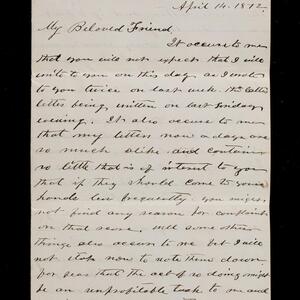 April 14. 1872.
My Beloved Friend,
It occurs to me
that you will not expect that I will
write to you on this day as I wrote
to you twice on last week the latter
letter being written on last Sunday
evening. It also occurs to me
that my letters now a days are
so much alike and contain
so little that is of interest to you
that if they should come to your
hands less frequently you might
not find any reason for complaint
on that score. And some other
things also occur to me but I will
not stop now to note them down
for fear that the act of so doing might
be an unprofitable task to me and